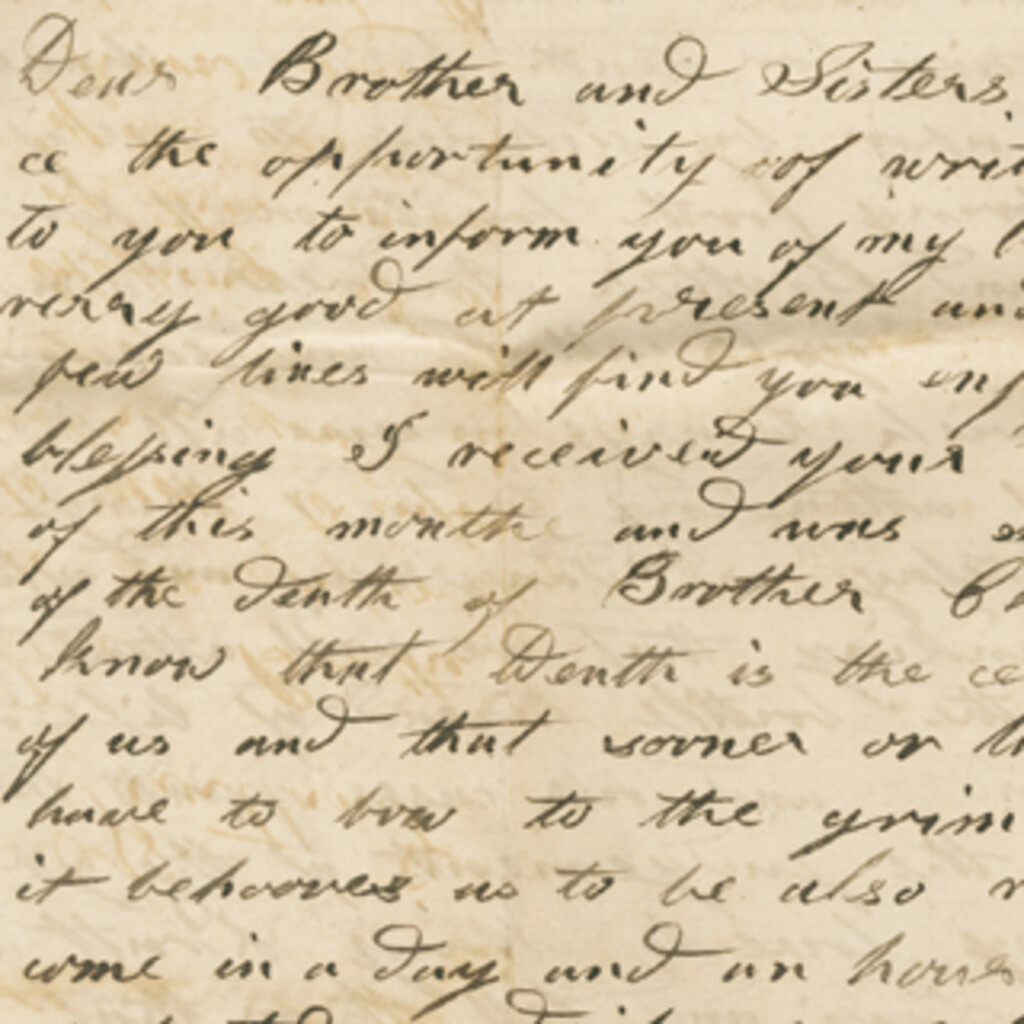 Dear Brother and Sisters
ce the opportunity of writ
to you to inform you of my
verry good at present and
few lines will find you enj
blessing I received your
of this month and was
of the death of Brother
know that Death is the ce
of us and that sooner or
have to bow to the grim
it behooves us to be also
come in a day and an hour